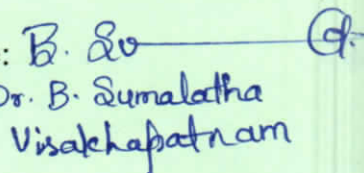 : B. Su
Dr. B. Sumalatha
Visakhapatnam